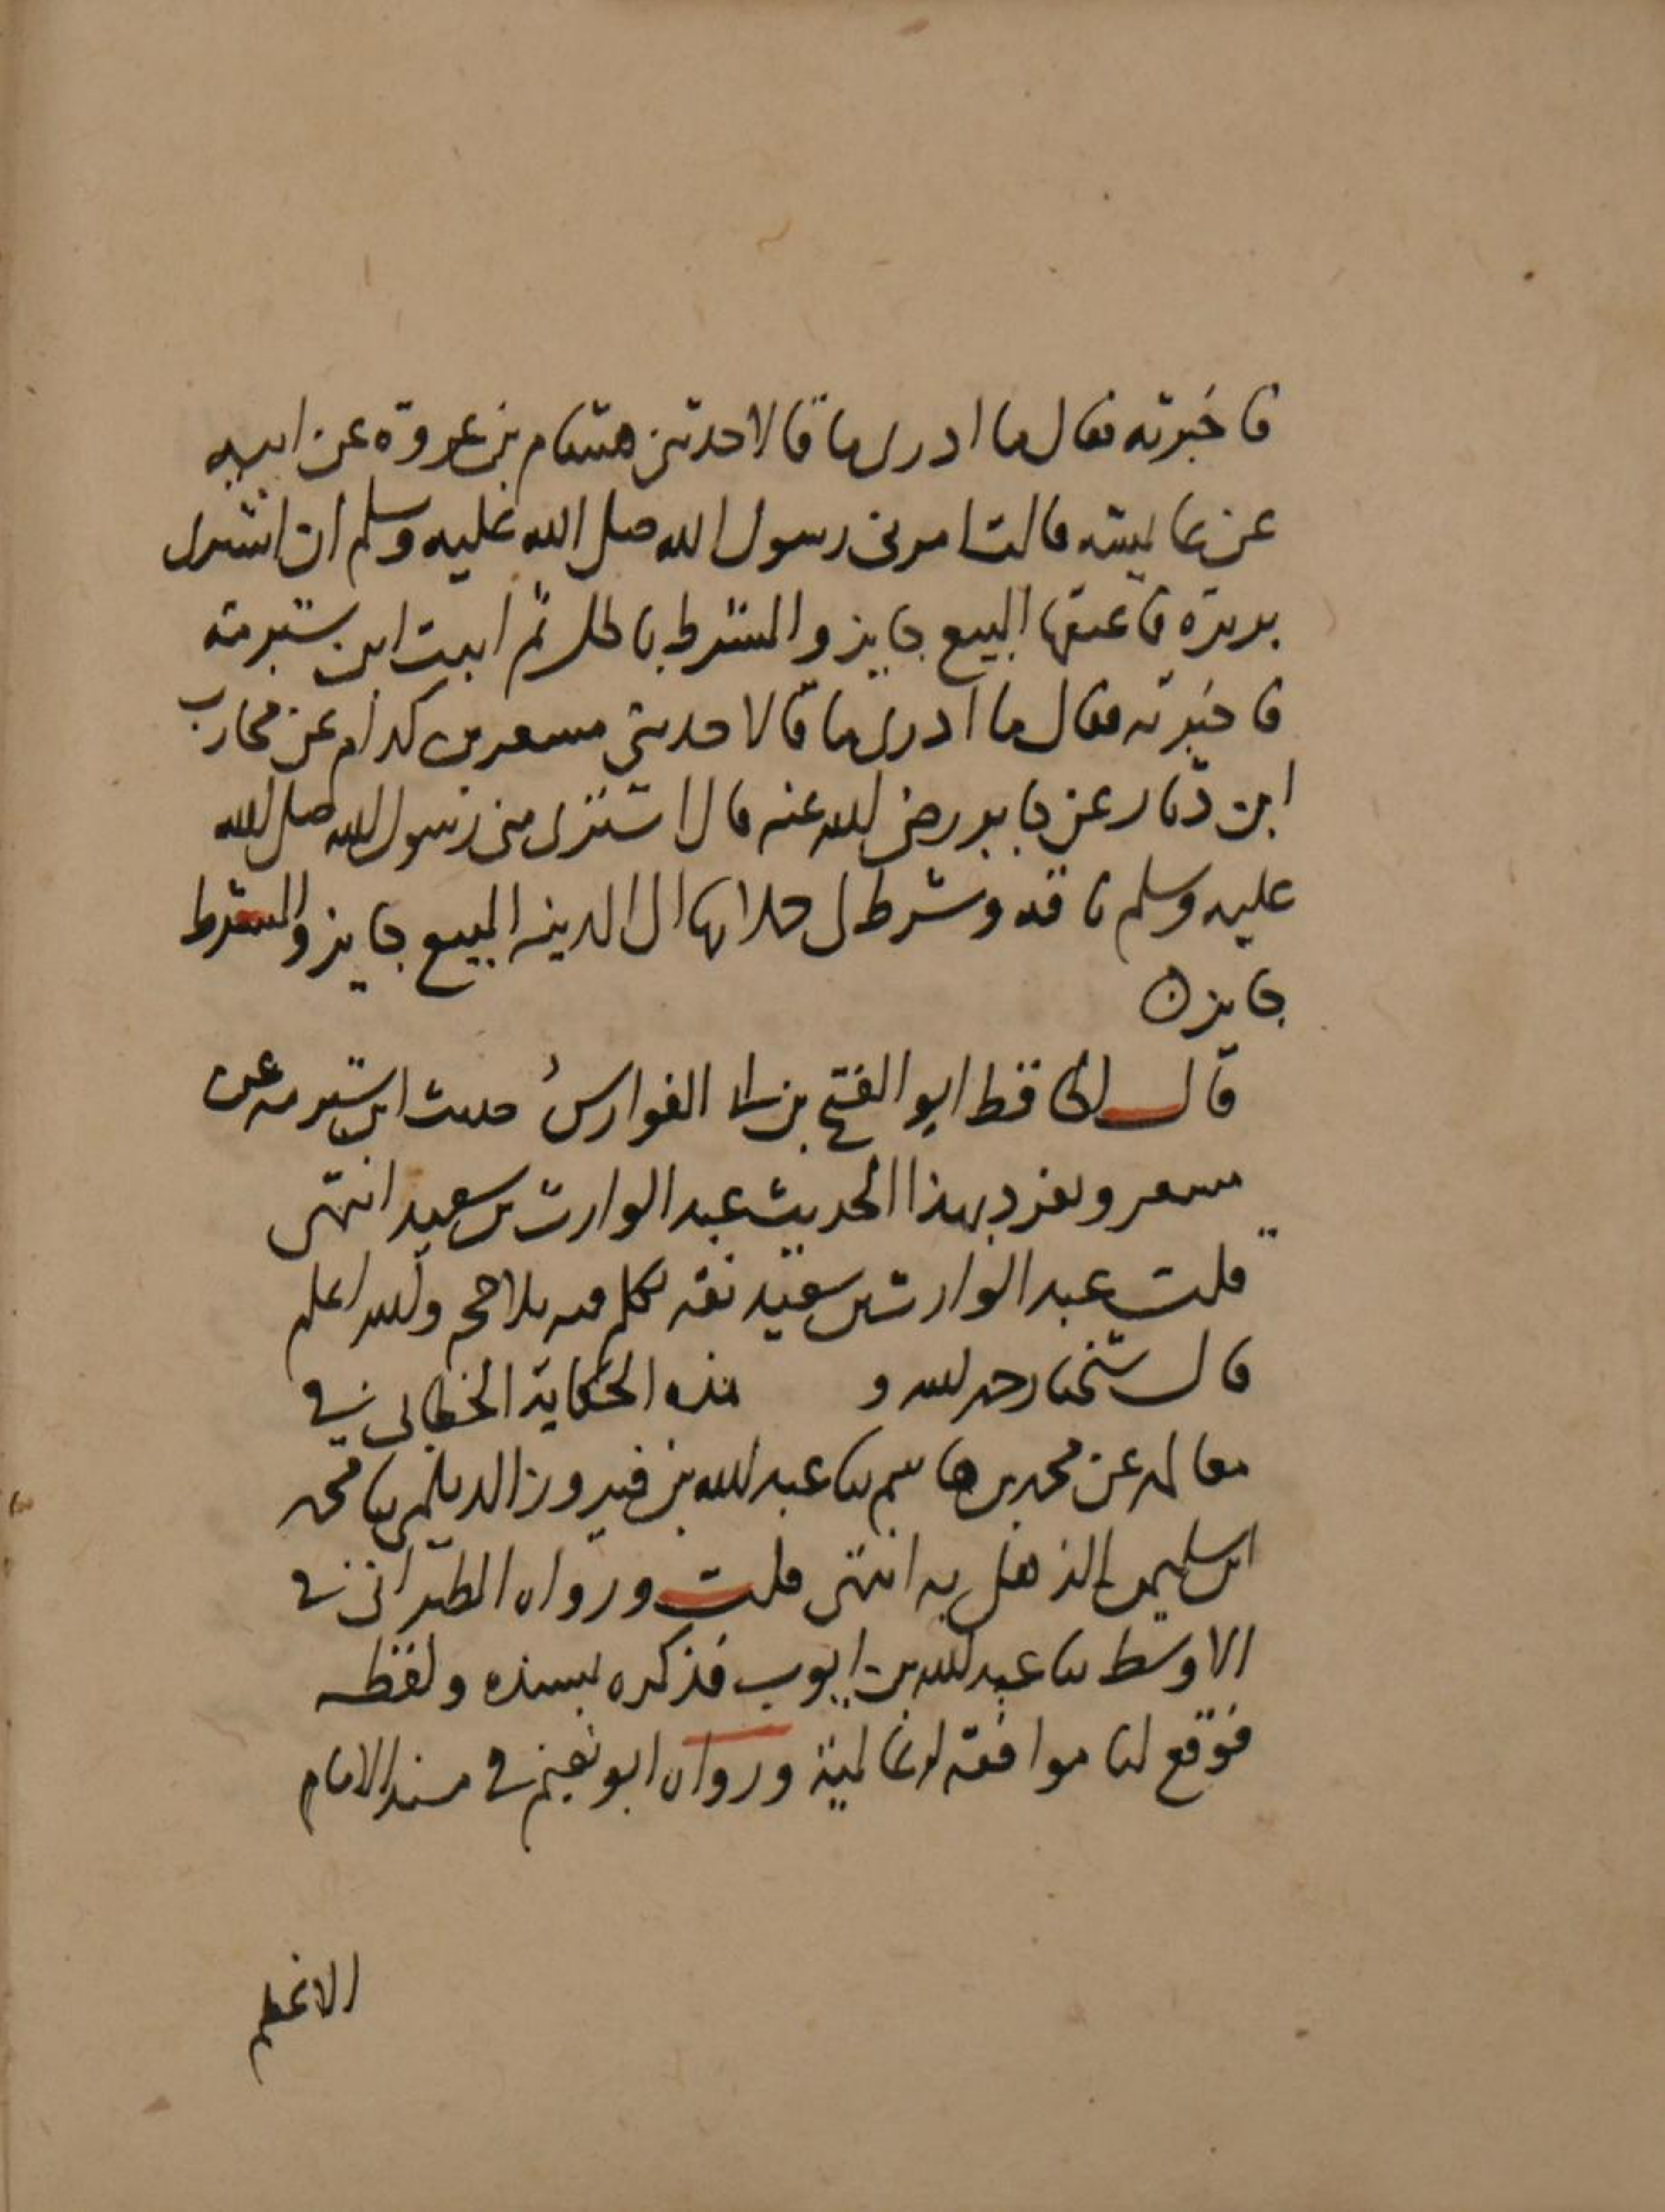 فاخبرته فقال ما ادرى ما قالا حدثنى هشام بن عروة عن ابيه
عن عايشه قالت امرنى رسول الله صلى الله عليه وسلم ان اشترى
بريرة فاعتقها البيع جايز والشرط باطل ثم اتيت ابن شبرمة
فاخبرته فقال ما ادرى ما قالا حدثنى مسعر بن كدام عن محارب
ابن دثار عن جابر رضى الله عنه قال اشترى منى رسول الله صلى الله
عليه وسلم ناقه وشرط لى حملانها الى المدينه البيع جايز والشرط
جايز
قال الحافظ ابو الفتح بن ابى الفوارس حديث ابن شبرمه عن
مسعر وتفرد بهذا الحديث عبد الوارث بن سعيد انتهى
قلت عبد الوارث بن سعيد ثقه تكلم فيه بلا حجه والله اعلم
قال شيخنا رحمه الله و هذه الحكاية الخطابى فى
معالمه عن محمد بن هاشم ثنا عبد الله بن فيروز الديلمى ثنا محمد
ابن سليمن الذهلى به انتهى قلت ورواه الطبرانى فى
الاوسط ثنا عبد الله بن ايوب فذكره بسنده ولفظه
فوقع لنا موافقة له عالية ورواه ابو نعيم فى مسند الامام
الاعظم